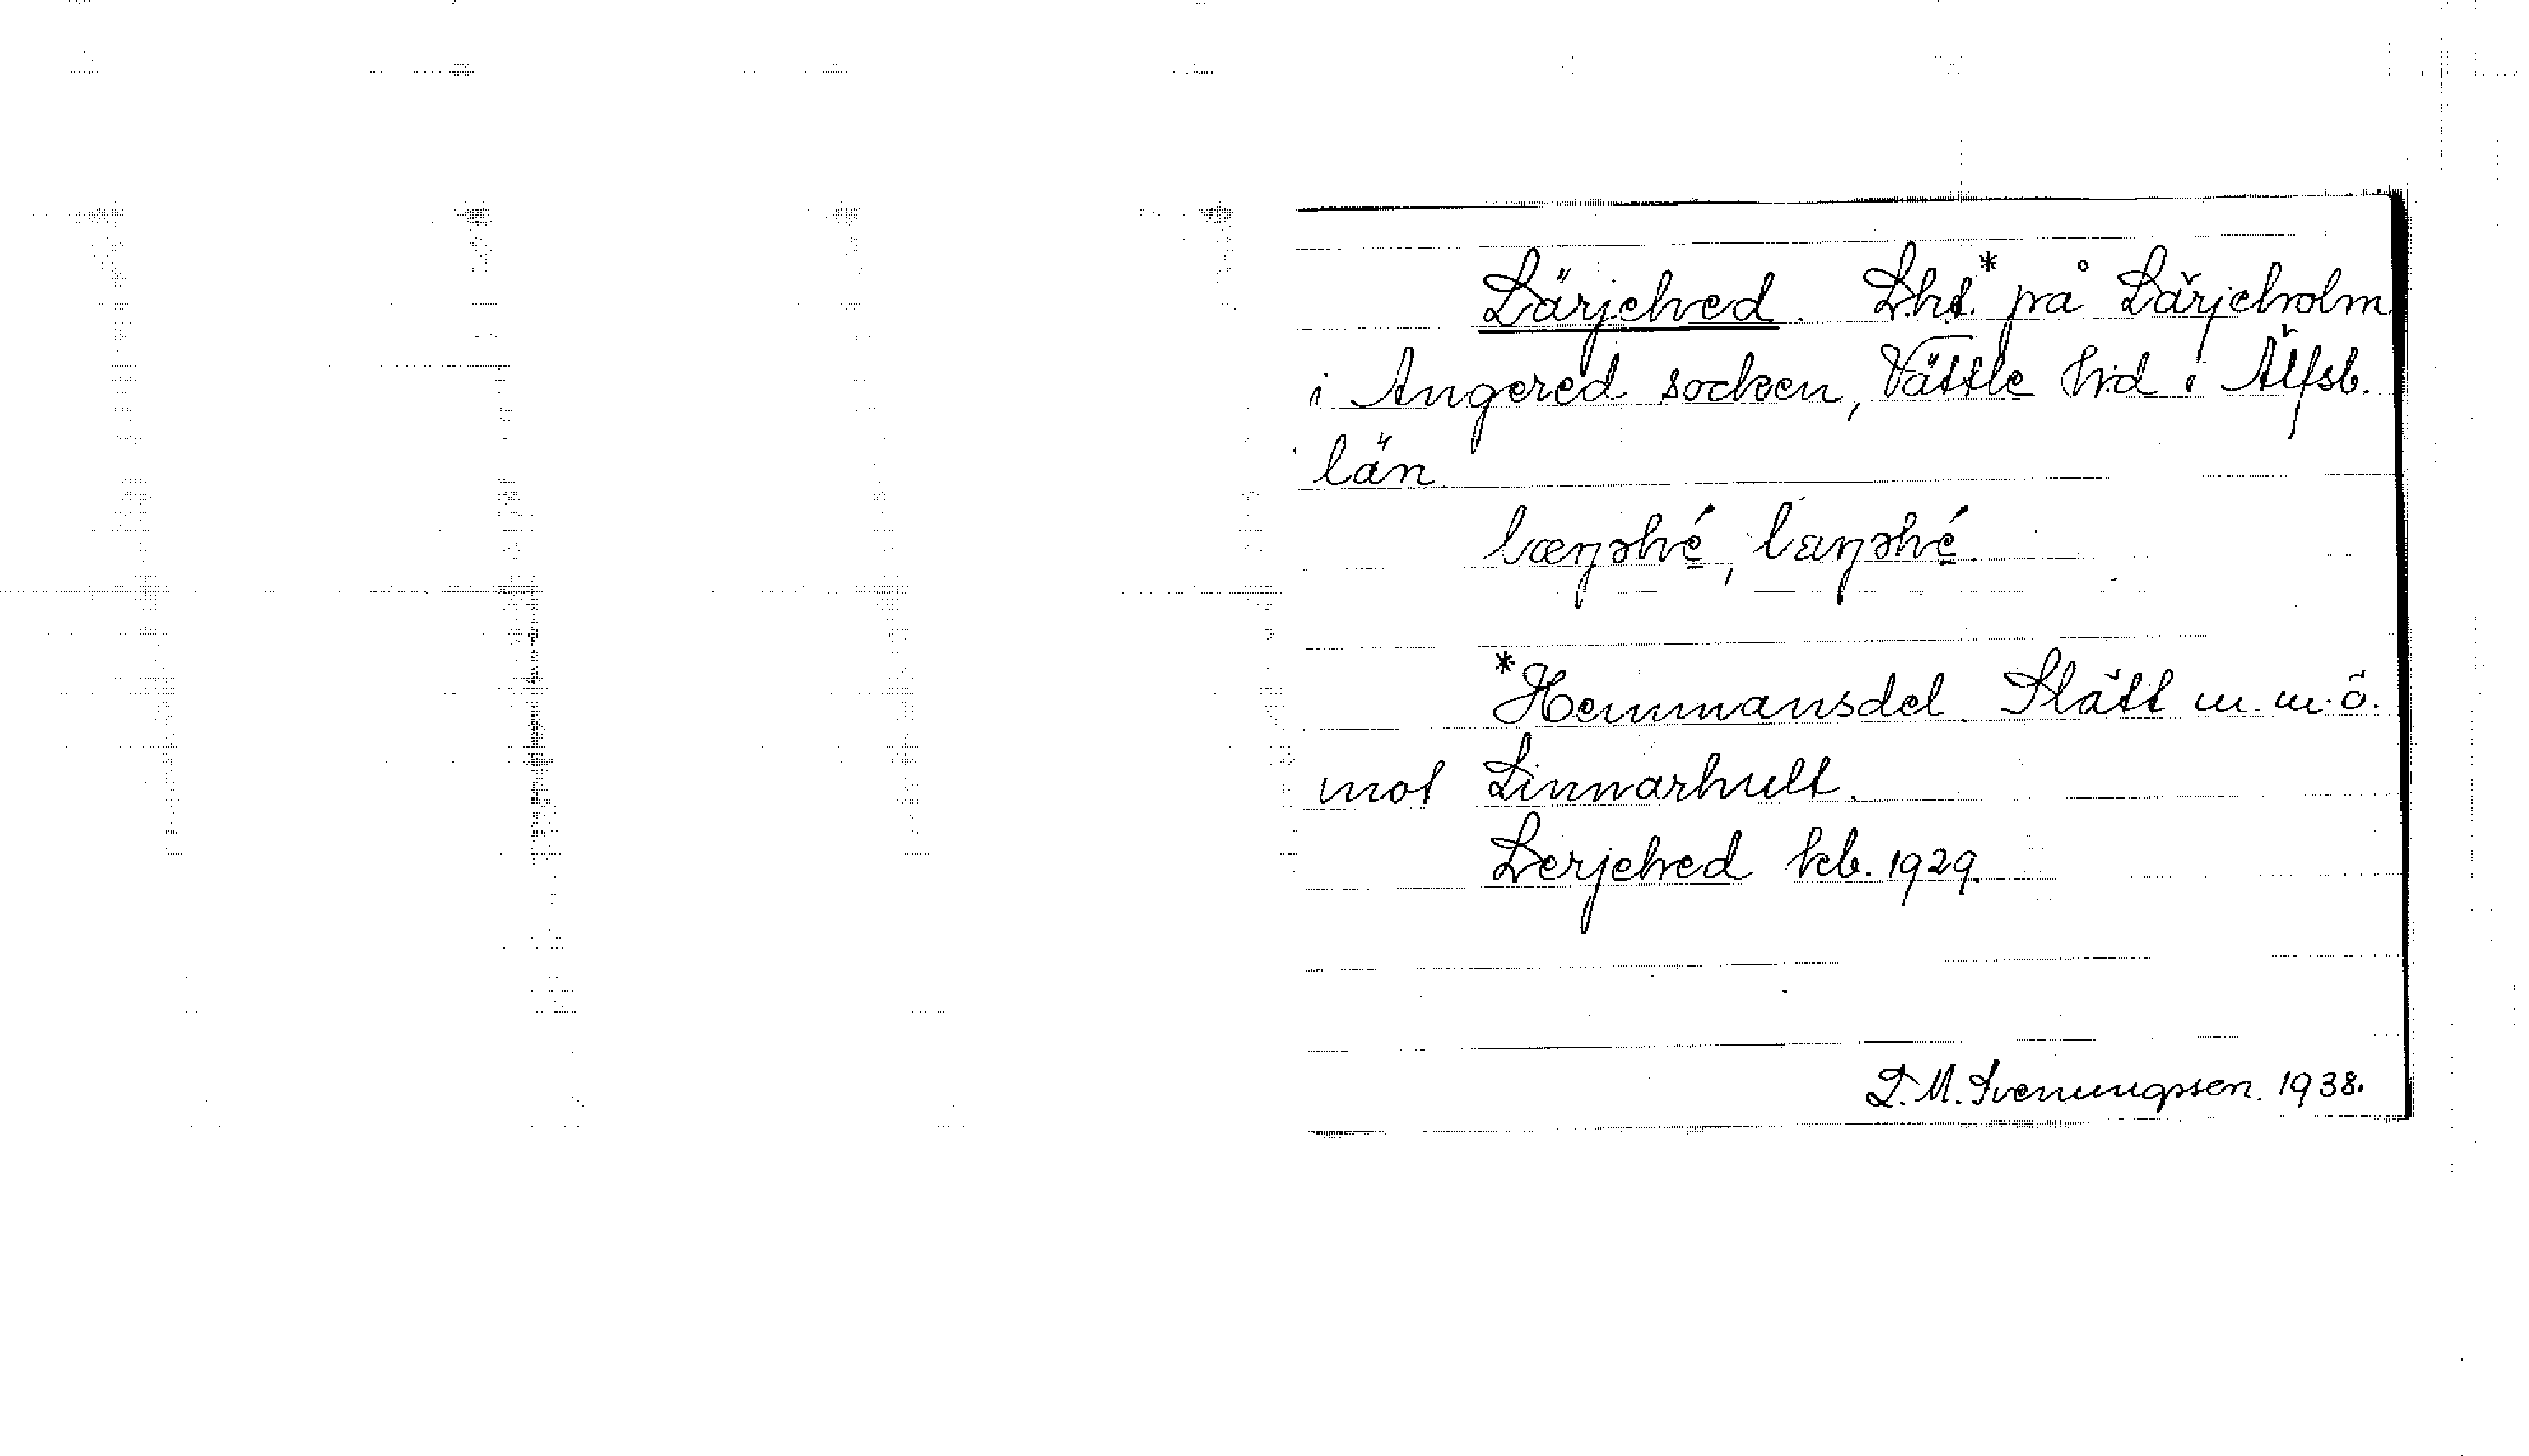 Lärjehed. Lht.* på Lärjeholm
i Angered socken, Vättle hd i Älfsb.
län
*Hemmansdel. Slätt m. m. ö.
mot Linnarhult.
Lerjehed kb. 1929.
D. M. Svenungsson. 1938.